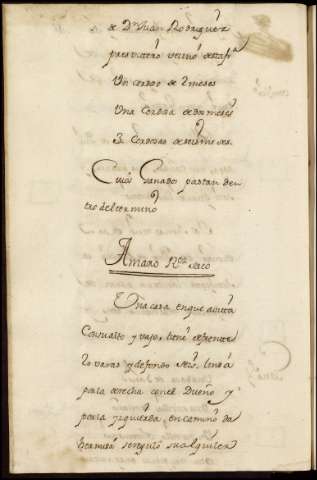 de Dn Juan Rodriguez
presvitero vecino de esta fa
Un cerdo de 2 meses
Una cerda de dos meses
3 cerdos de seis meses
Cuios Ganados pastan den
tro del termino
Amaro Rez seco
Una casa en que avita
Con alto y vajo, tiene de frente
10 varas y de fondo seis, linda a
parte derecha con el Dueño y
parte yzquierda, en camino da
hermita sen quto su alquiler